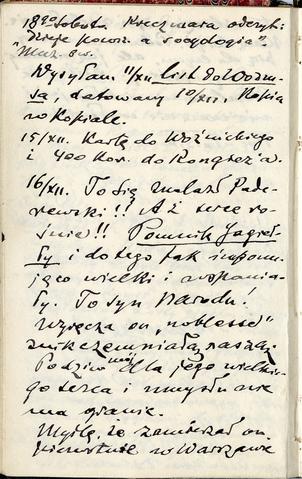 18²⁰ Sobota. Kuczmara odczyt:
Dzieje powsz. a socyologia".
"Muz. św.
Wysyłam 11/XII. list do Woźni-
, datowany 10/XII. Kopia
w Kopiale.
15/XII. Kartę do Woźnickiego
i 400 Kor. do Kongresów.
16/XII. To się znalazł Pade-
rewski!! Aż serce ro-
śnie!! Pomnik Jagieł-
ły i do tego tak imponu-
jąco wielki i wspania-
ły. To syn Narodu!
Wyręcza on „noblesse"
znikczemniałą naszą.
Podziw mój dla jego wielkie-
go serca i umysłu nie
ma granic.
Myślę, że zamierzał on
pierwotnie w Warszawie